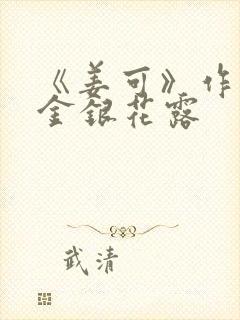 《姜可》作
金银花露
武清